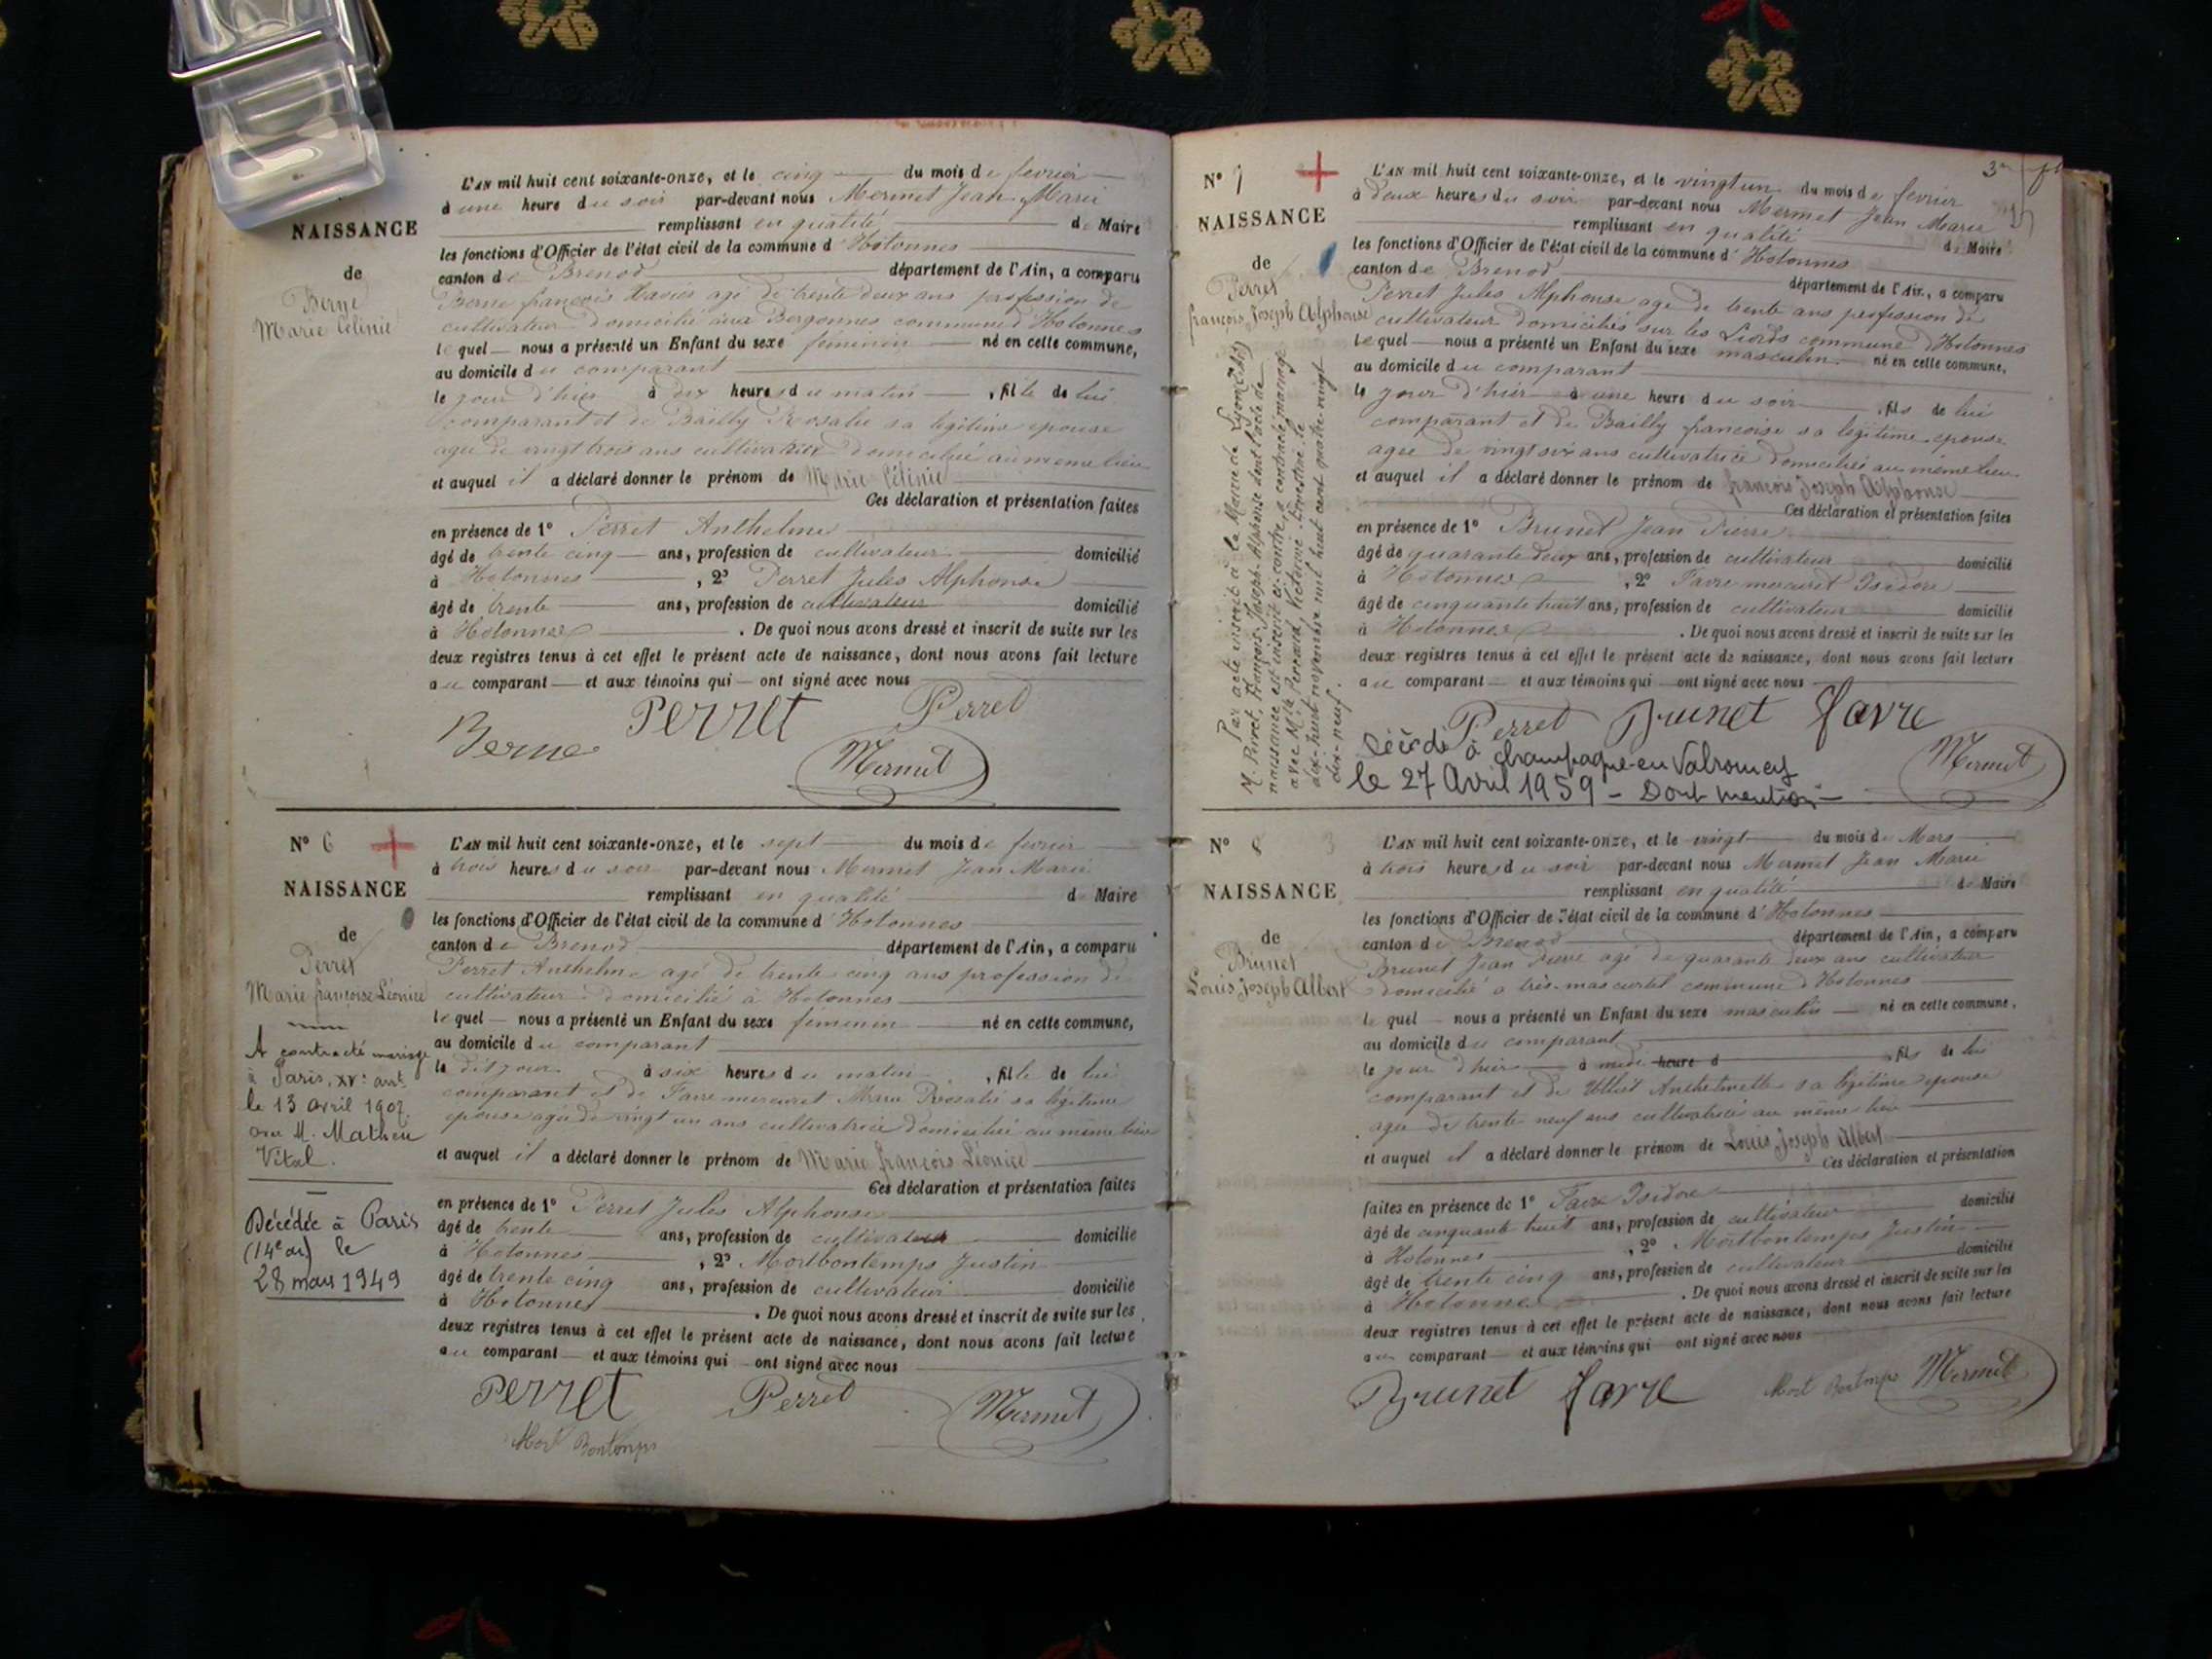 NAISSANCE
de
Berne
Marie Célinie
L'AN mil huit cent soixante-onze, et le cinq du mois de fevrier
à une heure du soir par-devant nous Mermet Jean Marie
remplissant en qualité de Maire
les fonctions d'Officier de l'état civil de la commune d'Hotonnes
canton de Brenod département de l'Ain, a comparu
Berne françois Xavier agé de trente deux ans profession de
cultivateur domicilié aux Bergonnes commune d'Hotonnes
lequel nous a présenté un Enfant du sexe femenin né en cette commune,
au domicile du comparant
le jour d'hier à dix heures du matin, fille de lui
comparant et de Bailly Rosalie sa légitime epouse
agée de vingt trois ans cultivatrice domiciliée au même lieu
et auquel il a déclaré donner le prénom de Marie Célinie
Ces déclaration et présentation faites
en présence de 1° Perret Anthelme
âgé de trente cinq ans, profession de cultivateur domicilié
à Hotonnes, 2° Perret Jules Alphonse
âgé de trente ans, profession de cultivateur domicilié
à Hotonnes. De quoi nous avons dressé et inscrit de suite sur les
deux registres tenus à cet effet le présent acte de naissance, dont nous avons fait lecture
au comparant et aux témoins qui ont signé avec nous
Berne Perret Perret
Mermet
N° 6
NAISSANCE
de
Perret
Marie françoise Léonice
A contracté mariage
à Paris, XVe arrt.
le 13 avril 1907.
avec M. Mathieu
Vital.
Décédée à Paris
(14e ar) le
28 mars 1949
L'AN mil huit cent soixante-onze, et le sept du mois de fevrier
à trois heures du soir par-devant nous Mermet Jean Marie
remplissant en qualité de Maire
les fonctions d'Officier de l'état civil de la commune d'Hotonnes
canton de Brenod département de l'Ain, a comparu
Perret Anthelme agé de trente cinq ans profession de
cultivateur domicilié à Hotonnes
lequel nous a présenté un Enfant du sexe femenin né en cette commune,
au domicile du comparant
le dit jour à six heures du matin, fille de lui
comparant et de Favre mercuret Marie Rosalie sa légitime
epouse agée de vingt un ans cultivatrice domiciliée au même lieu
et auquel il a déclaré donner le prénom de Marie françois Léonice
Ces déclaration et présentation faites
en présence de 1° Perret Jules Alphonse
âgé de trente ans, profession de cultivateur domicilié
à Hotonnes, 2° Mortbontemps Justin
âgé de trente cinq ans, profession de cultivateur domicilié
à Hotonnes. De quoi nous avons dressé et inscrit de suite sur les
deux registres tenus à cet effet le présent acte de naissance, dont nous avons fait lecture
au comparant et aux témoins qui ont signé avec nous
Perret Perret Mermet
Mort Bontemps
3me
N° 7
NAISSANCE
de
Perret
françois Joseph Alphonse
Par acte inscrit à la Mairie de Lyon
M. Perret, François-Joseph-Alphonse dont l'acte de
naissance est inscrit ci-contre, a contracté mariage
avec Mlle Perrand, Victorine Ernestine le
dix-huit novembre mil huit cent quatre-vingt
dix-neuf.
L'AN mil huit cent soixante-onze, et le vingt un du mois de fevrier
à deux heures du soir par-devant nous Mermet Jean Marie
remplissant en qualité de Maire
les fonctions d'Officier de l'état civil de la commune d'Hotonnes
canton de Brenod département de l'Ain, a comparu
Perret Jules Alphonse agé de trente ans profession de
cultivateur domiciliés sur les Liords commune d'Hotonnes
lequel nous a présenté un Enfant du sexe masculin né en cette commune,
au domicile du comparant
le jour d'hier à une heure du soir, fils de lui
comparant et de Bailly francoise sa légitime epouse
agée de vingt six ans cultivatrice domiciliés au même lieu
et auquel il a déclaré donner le prénom de françois Joseph Alphonse
Ces déclaration et présentation faites
en présence de 1° Brunet Jean Pierre
âgé de quarante deux ans, profession de cultivateur domicilié
à Hotonnes, 2° Favre mercuret Isidore
âgé de cinquante huit ans, profession de cultivateur domicilié
à Hotonnes. De quoi nous avons dressé et inscrit de suite sur les
deux registres tenus à cet effet le présent acte de naissance, dont nous avons fait lecture
au comparant et aux témoins qui ont signé avec nous
Perret Brunet favre
Mermet
Décédé à Champagne-en Valromey
le 27 Avril 1959 - Dont mention -
N° 8
NAISSANCE
de
Brunet
Louis Joseph Albert
L'AN mil huit cent soixante-onze, et le vingt du mois de Mars
à trois heures du soir par-devant nous Mermet Jean Marie
remplissant en qualité de Maire
les fonctions d'Officier de l'état civil de la commune d'Hotonnes
canton de Brenod département de l'Ain, a comparu
Brunet Jean Pierre agé de quarante deux ans cultivateur
domicilié a commune d'Hotonnes
lequel nous a présenté un Enfant du sexe masculin né en cette commune.
au domicile du comparant
le jour d'hier à midi heure d, fils de lui
comparant et de Anthelmette sa légitime epouse
agée de trente neuf ans cultivatrice au même lieu
et auquel il a déclaré donner le prénom de Louis Joseph Albert
Ces déclaration et présentation
faites en présence de 1° Favre Isidore domicilié
âgé de cinquante huit ans, profession de cultivateur
à Hotonnes, 2° Mortbontemps Justin
âgé de trente cinq ans, profession de cultivateur domicilié
à Hotonnes. De quoi nous avons dressé et inscrit de suite sur les
deux registres tenus à cet effet le présent acte de naissance, dont nous avons fait lecture
au comparant et aux témoins qui ont signé avec nous
Brunet favre Mort Bontemps Mermet